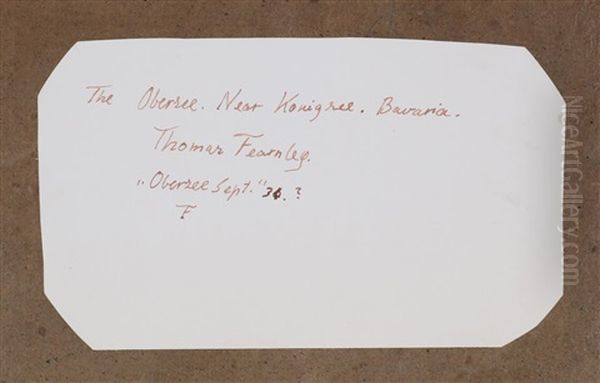 The Obersee. Near Konigsee. Bavaria.
Thomas Fearnley.
"Obersee Sept." 36. ?
F
NiceArtGallery.com